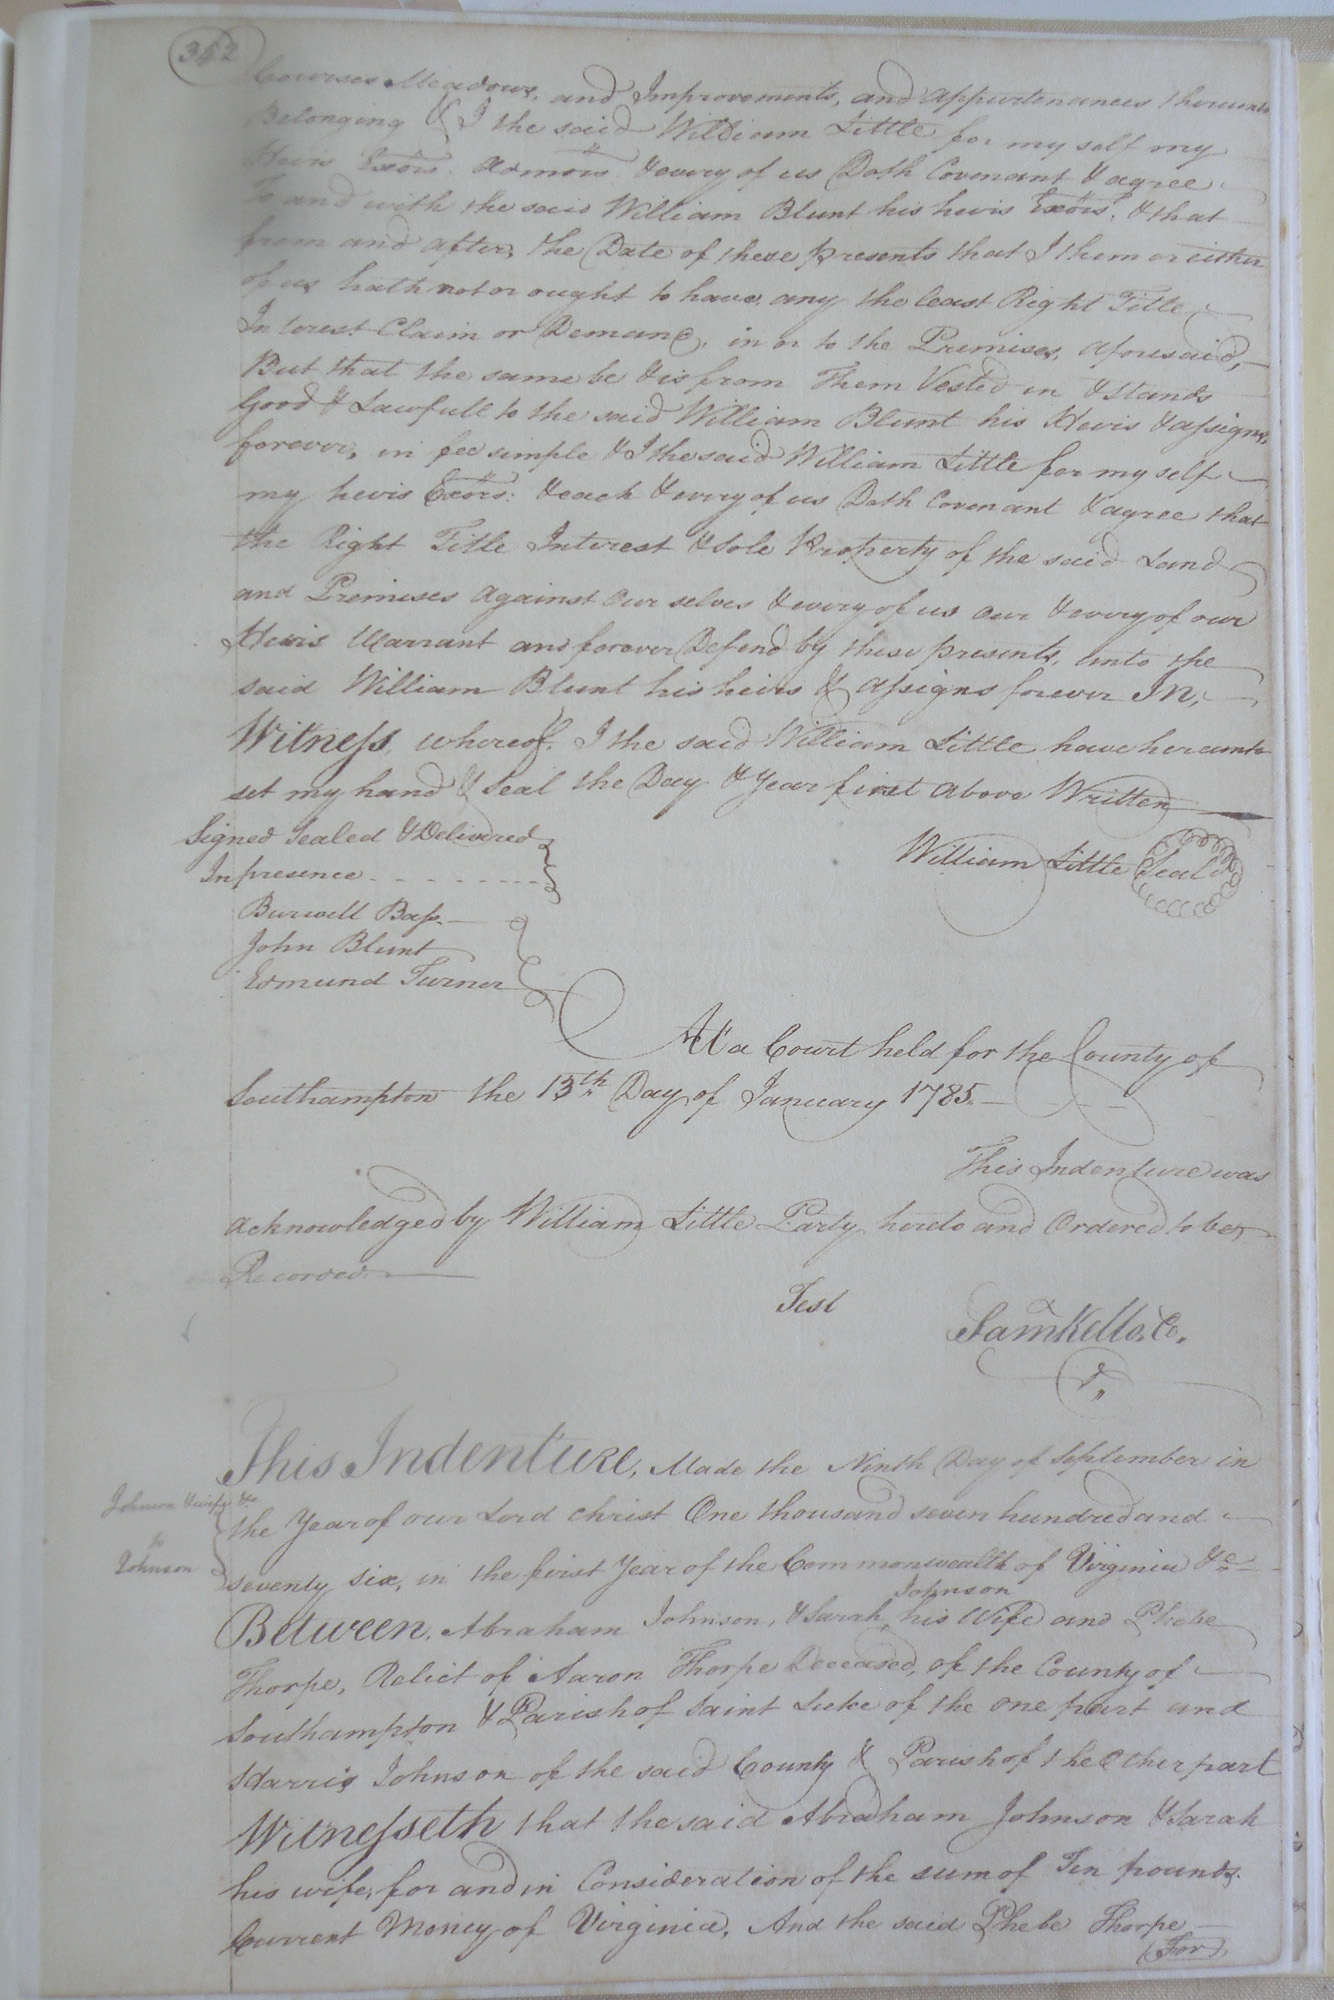 342
Courses Meadows, and Improvements, and appurtenances thereunto
Belonging & I the said William Little for my self my
Hevis Exõrs. Admõrs & every of us Doth Covenant & agree
To and with the said William Blunt his hevis Exõrs. & that
from and after, the Date of these presents that I them or either
of us hath not or ought to have any the least Right Title
Interest Claim or Demand, in or to the Premises, aforesaid,
But that the same be & is from Them Vested in & stands
Good & Lawfull to the said William Blunt his Hevis & assigns,
forever, in fee simple & I the said William Little for my self
my hevis Exõrs: & each & every of us Doth Covenant & agree that
the Right Title Interest & Sole Property of the said Land
and Premises Against Our selves & every of us our & every of our
Hevis Warrant and forever Defend by these presents, unto the
said William Blunt his heirs & assigns forever IN,
Witness, whereof, I the said William Little have hereunto
set my hand & Seal the Day & Year first above Written
Signed Sealed & Delivered
In presence
William Little Seal
Burwell Bass.
John Blunt
Edmund Turner
At a Court held for the County of
Southampton the 13th Day of January 1785.
This Indenture was
acknowledged by William Little Party hereto and Ordered to be
Recorded
Test
Sam Kello. Co.
This Indenture, Made the Ninth Day of September in
Johnson & wife &c
the Year of our Lord Christ One thousand seven hundred and
to
Johnson
seventy six, in the first Year of the Commonwealth of Virginia &c
Johnson
Between, Abraham Johnson, & Sarah, his Wife and Phebe
Thorpe, Relict of Aaron Thorpe Deceased, of the County of
Southampton & Parish of Saint Luke of the one part and
Harris Johnson of the said County & Parish of the Other part
Witnesseth that the said Abraham Johnson & Sarah
his wife, for and in Consideration of the sum of Ten pounds.
Current Money of Virginia, And the said Phebe Thorpe
(For)